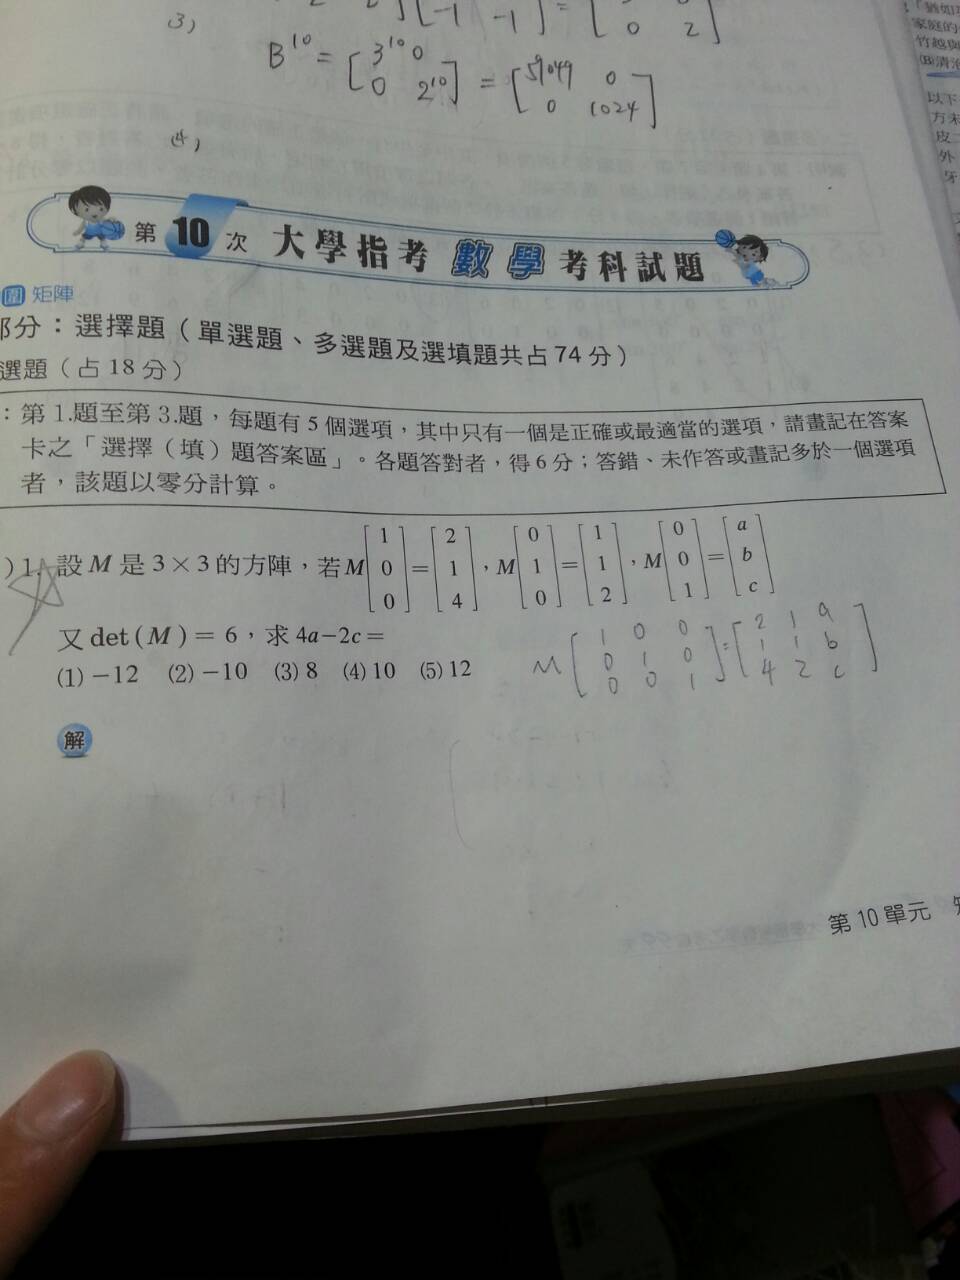 3)
[-1 -1] = [0 2]
B¹⁰ = [3¹⁰ 0
0 2¹⁰] = [59049 0
0 1024]
4)
第10次 大學指考 數學 考科試題
圍 矩陣
部分：選擇題（單選題、多選題及選填題共占74分）
選題（占18分）
：第1.題至第3.題，每題有5個選項，其中只有一個是正確或最適當的選項，請畫記在答案
卡之「選擇（填）題答案區」。各題答對者，得6分；答錯、未作答或畫記多於一個選項
者，該題以零分計算。
)1. 設M是3×3的方陣，若M[1 0 0]=[2 1 4]，M[0 1 0]=[1 1 2]，M[0 0 1]=[a b c]
又det(M)=6，求4a−2c=
(1)−12 (2)−10 (3)8 (4)10 (5)12
M[1 0 0
0 1 0
0 0 1]=[2 1 a
1 1 b
4 2 c]
解
第10單元
家庭的
竹越與
以下
方未
皮二
外
牙